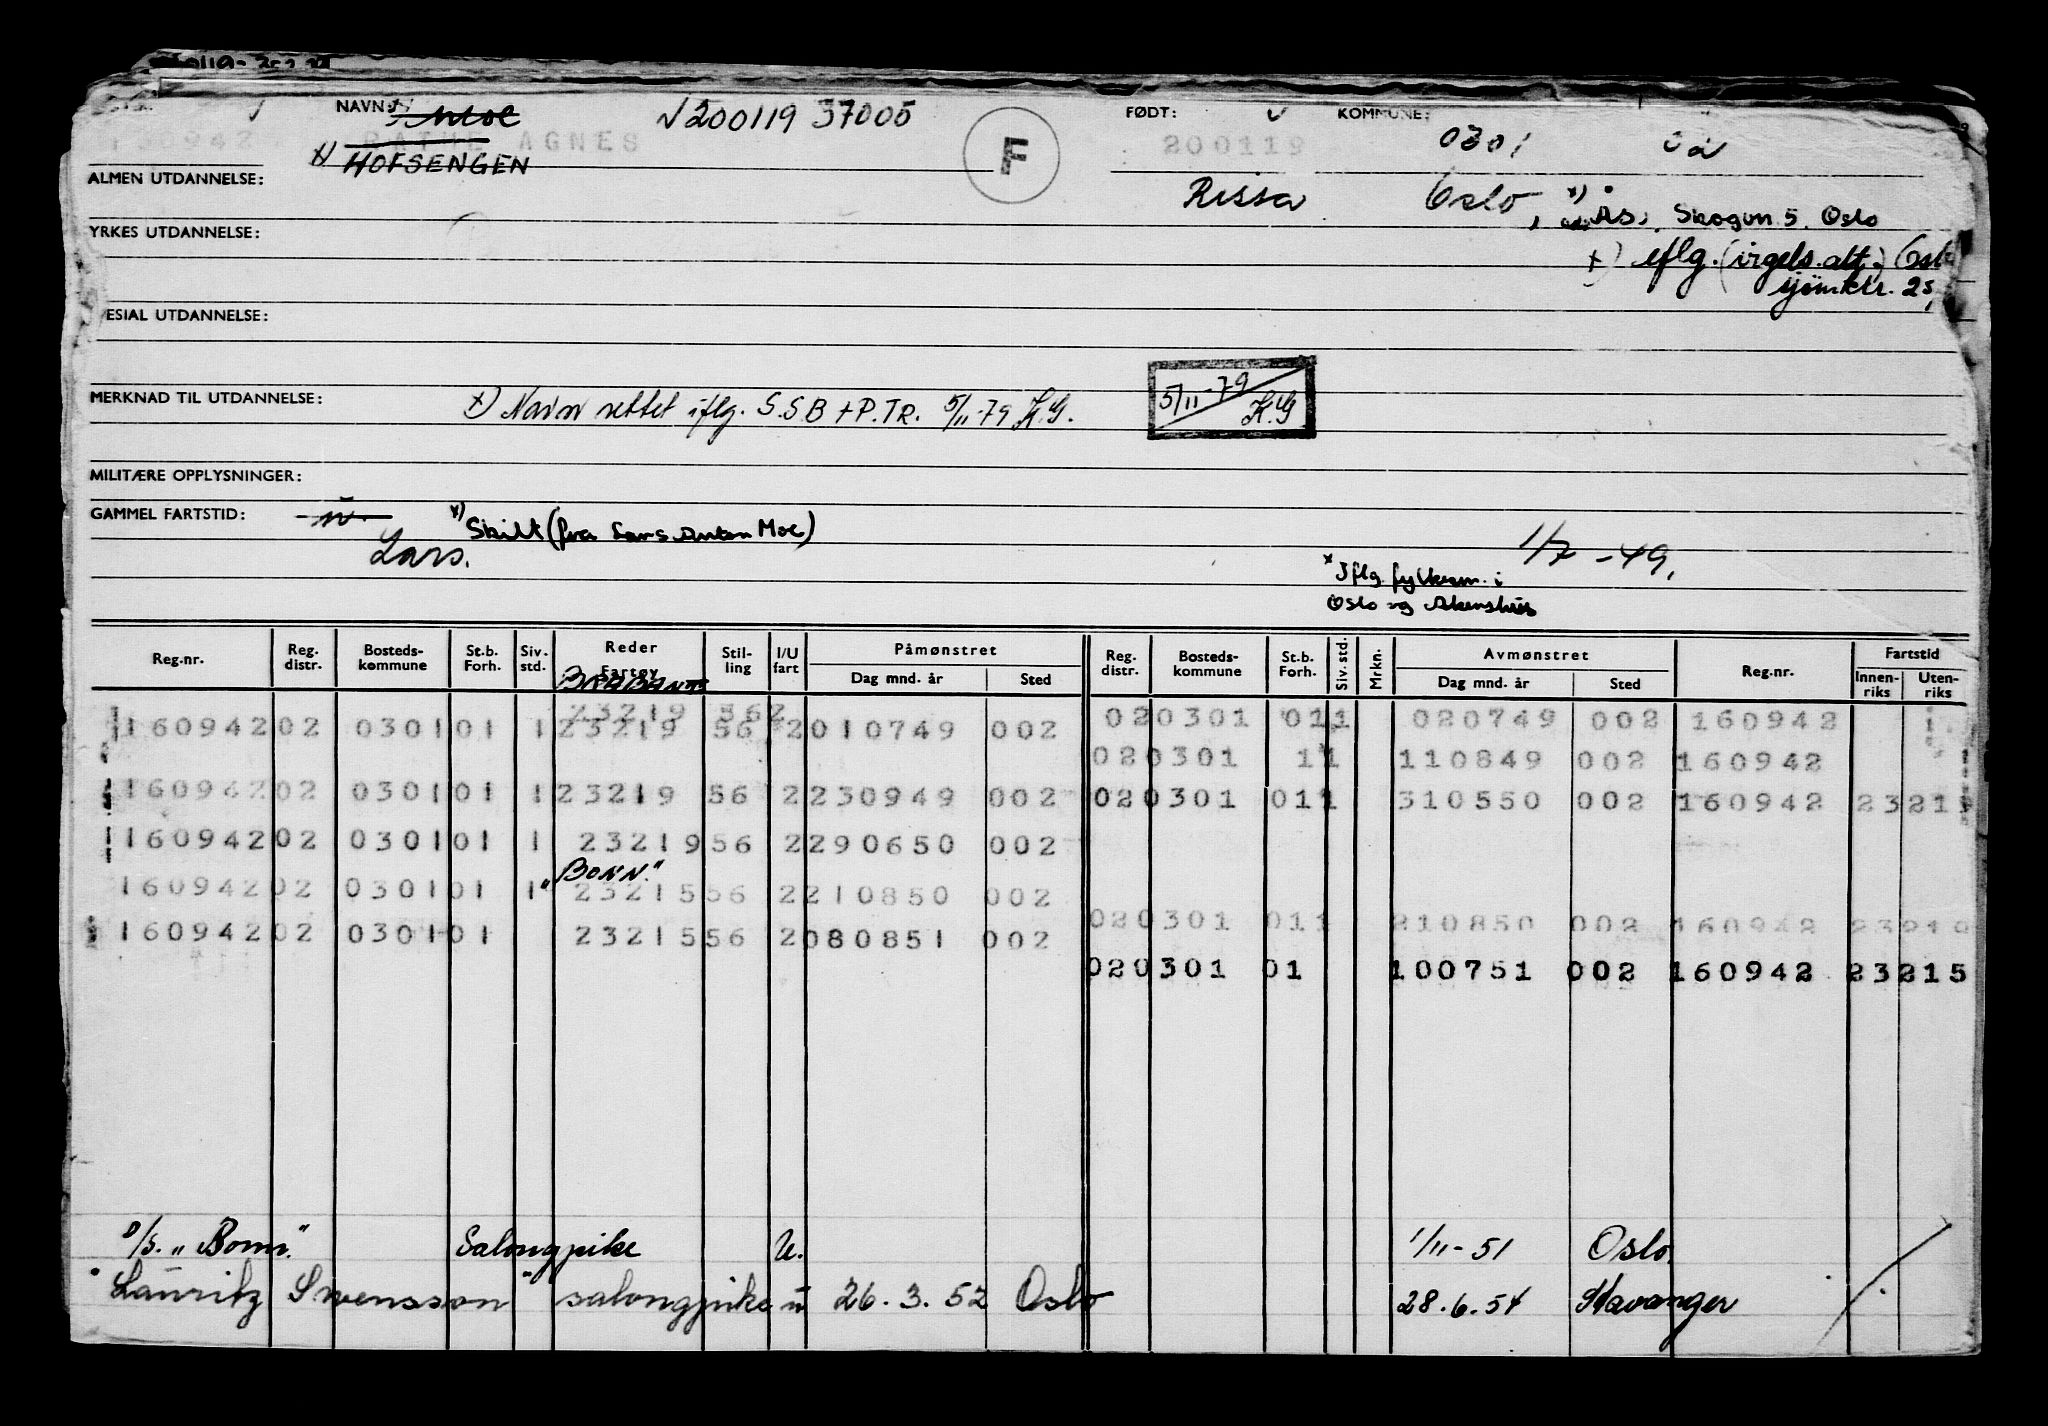 NAVN: Moe √200119 37005 FØDT: KOMMUNE:
130942 RATHE AGNES F 200119 0301
x) HOFSENGEN
ALMEN UTDANNELSE: Rissa Oslo, x) Ås, Skogvn. 5, Oslo
YRKES UTDANNELSE:
x) iflg. (irgels.att.) Oslo
sjømktr. 25,
ESIAL UTDANNELSE:
MERKNAD TIL UTDANNELSE: x) Navn rettet iflg. S.S.B + P.TR. 5/11-79 K.G. 5/11-79 K.G
MILITÆRE OPPLYSNINGER:
GAMMEL FARTSTID: x) Skilt (fra Lars Anton Moe)
Lars. 1/7-49.
x Iflg. fylkesm. i
Oslo og Akershus
Reg.nr. Reg. distr. Bosteds-kommune St.b. Forh. Siv. std. Reder Fartøy Stil-ling I/U fart Påmønstret Dag mnd. år Sted Reg. distr. Bosteds-kommune St.b. Forh. Siv. std. Mrkn. Avmønstret Dag mnd. år Sted Reg.nr. Fartstid Innen-riks Uten-riks
BRABANT
23219 562
160942 02 0301 01 1 23219 56 2 010749 002 02 0301 011 020749 002 160942
02 0301 11 110849 002 160942
160942 02 0301 01 1 23219 56 2 230949 002 02 0301 011 310550 002 160942 2321
160942 02 0301 01 1 23219 56 2 290650 002
"BONN"
160942 02 0301 01 1 23215 56 2 210850 002
02 0301 011 210850 002 160942 23219
160942 02 0301 01 23215 56 2 080851 002
02 0301 01 100751 002 160942 23215
D/S. "Bonn" Salongpike U. 1/11-51 Oslo.
" Lauritz Swensson " salongpike u 26.3.52 Oslo 28.6.54 Stavanger